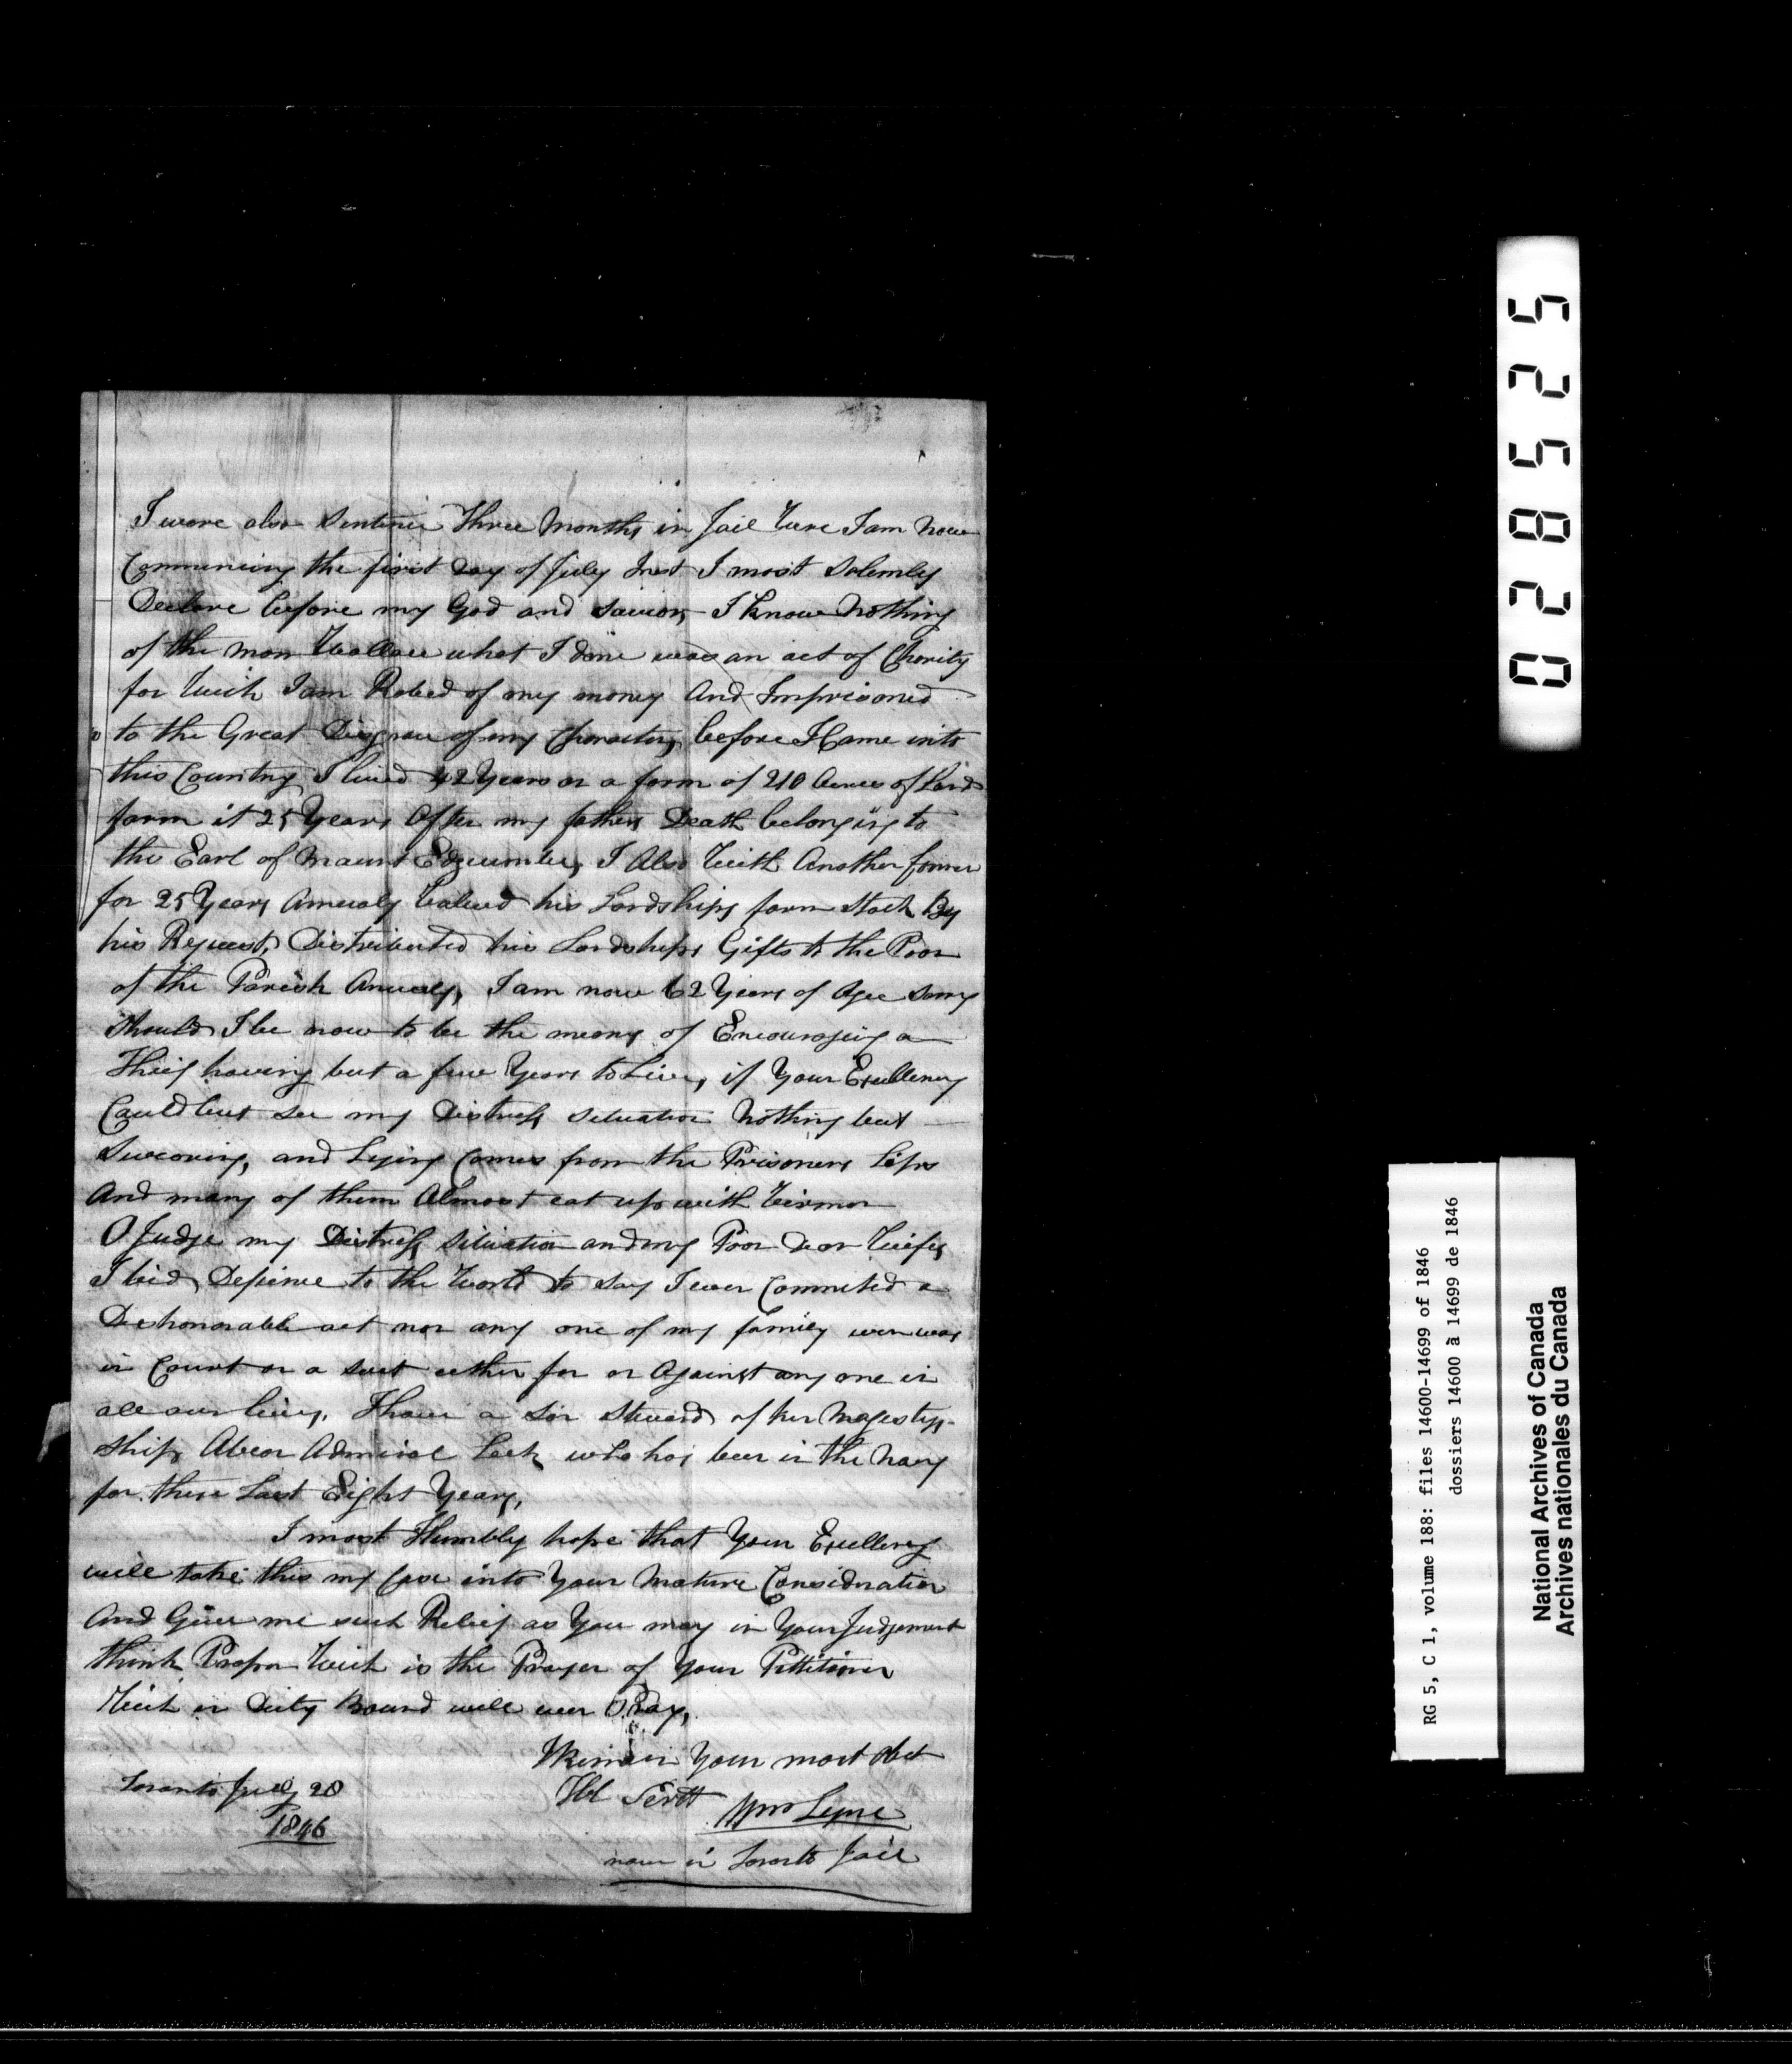 I were also Sentence Three Months in Jail were I am Now
Commencing the first Day of July Inst I most Solemly
Declare before my God and Savior, I know Nothing
of the man Wallace what I done was an act of Charity
for Wich I am Robed of my money And Imprisoned
to the Great Disgrace of my Character, before I Came into
this Country I lived 42 Years on a farm of 210 Acres of Land
farm it 25 Years After my fathers Death belonging to
the Earl of Maunt Edgcumbe, I Also With Another farmer
for 25 Years Annualy Valued his Lordships farm Stock By
his Request, Distributed his Lordships Gifts to the Poor
of the Parish Anualy, I am now 62 Years of Age Sorry
Should I be now to be the means of Encouraging a
Thief having but a few Years to Live, if Your Exellency
Could but See my Distress Situation Nothing but
Swearing, and Lying Comes from the Prisoners Lips
And many of them Almost eat up with Virmon
O Judge my Distress, Situation and my Poor Dear Wifes,
I bid Defience to the World to Say I ever Commited a
Dishonorable act nor any one of my family ever was
in Court on a Suit either for or Against any one in
all our lives, I have a Son Steward of her Magestys
Ship Admiral who has been in the Navy
for these Last Eight Years,
I most Humbly hope that Your Exellency
will take this my Case into Your Mature Consideration
And Give me such Relief as You may in Your Judgement
think Proper Wich is the Prayer of Your Pettitioner
Wich in Duty Bound will ever Pray,
I Remain Your most Obt
Hbl Servt
Wm Lyne
now in Toronto Jail
Toronto July 28
1846
028525
RG 5, C 1, volume 188: files 14600-14699 of 1846
dossiers 14600 à 14699 de 1846
National Archives of Canada
Archives nationales du Canada